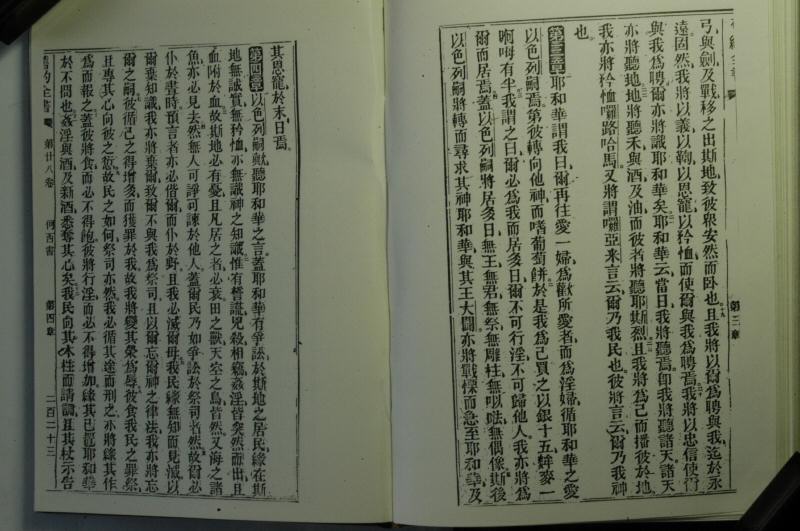 弓與劍及戰移之出斯地致彼衆安然而卧也且我將以爾爲聘與我迄於永
遠固然我將以義以鞫以恩寵以矜恤而使爾與我爲聘焉我將以忠信使爾
與我爲聘爾亦將識耶和華矣耶和華云當日我將聽焉卽我將聽諸天諸天
亦將聽地地將聽禾與酒及油而彼者將聽耶斯烈且我將爲己而播彼於地
我亦將矜恤囉路哈馬又將謂囉亞米言云爾乃我民也彼將言云爾乃我神
也
第三章 耶和華謂我曰爾再往愛一婦爲歡所愛者而爲淫婦循耶和華之愛
以色列嗣焉第彼轉向他神而嗜葡萄餅於是我爲己買之以銀十五 麥一
有半我謂之曰爾必爲我而居多日爾不可行淫不可歸他人我亦將爲
爾而居焉蓋以色列嗣將居多日無王無君無祭無雕柱無 無偶像斯後
以色列嗣將轉而尋求其神耶和華與其王大闢亦將戰慄而急至耶和華及
第三章
其恩寵於末日焉
第四章 以色列嗣歟聽耶和華之言蓋耶和華有爭訟於斯地之居民緣在斯
地無誠實無矜恤亦無識神之知識惟有誓謊兇殺相竊姦淫皆突然而出且
血附於血故斯地必有憂且凡居之者必衰田之獸天空之鳥皆然又海之諸
魚亦必見去然無人可諍可諫於他人蓋爾民乃如爭訟於祭司者然故爾必
仆於晝時預言者亦必偕爾而仆於野且我必滅爾母我民緣無知而見滅以
爾棄知識我亦將棄爾致爾不與我爲祭司且以爾忘爾神之律法我亦將忘
爾之嗣彼循己之得增多而獲罪於我故我將變其榮爲辱彼食我民之罪祭
且專其心向彼之愆故民之如何祭司亦然我必循其途而刑之亦將緣其作
爲而報之蓋彼將食而必不得飽彼將行淫而必不得增加緣其已罷耶和華
於不問也姦淫與酒及新酒悉奪其心矣我民向其木柱而請謂且其杖示告
第廿八卷 何西書 第四章 二百二十三